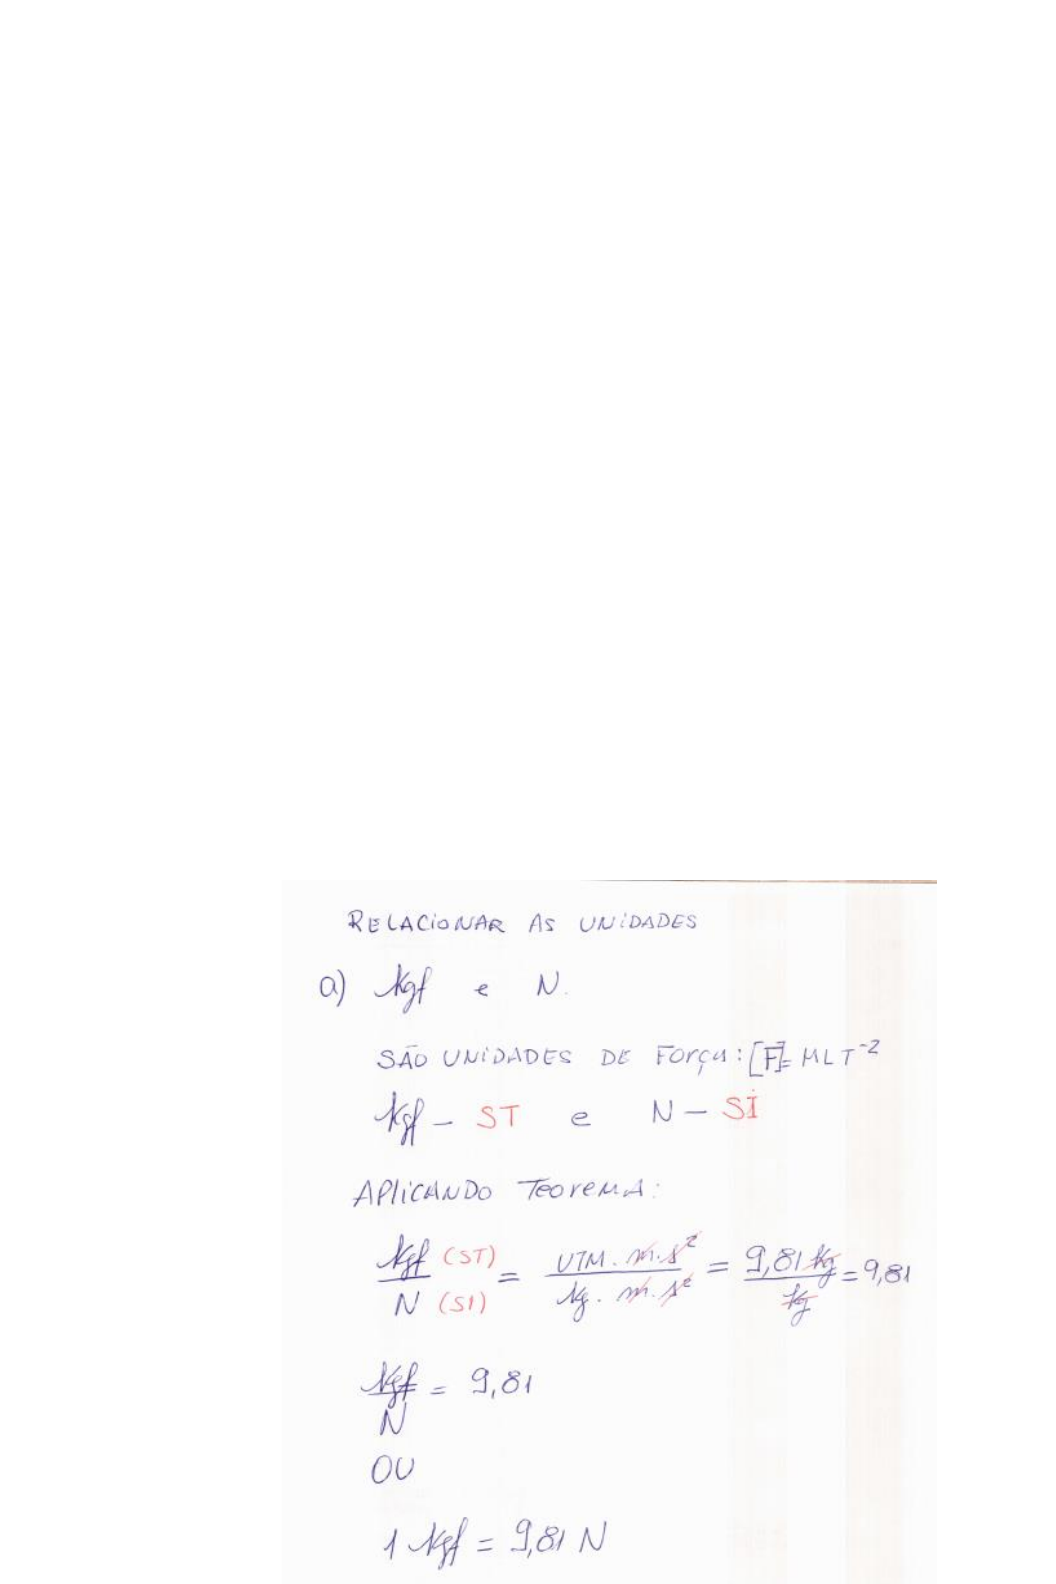 RELACIONAR AS UNIDADES
a) Kgf e N.
SÃO UNIDADES DE FORÇA: [F]= MLT⁻²
Kgf - ST e N - SI
APLICANDO TEOREMA:
Kgf (ST) / N (SI) = UTM . m . s² / kg . m . s² = 9,81 kg / kg = 9,81
Kgf / N = 9,81
OU
1 Kgf = 9,81 N